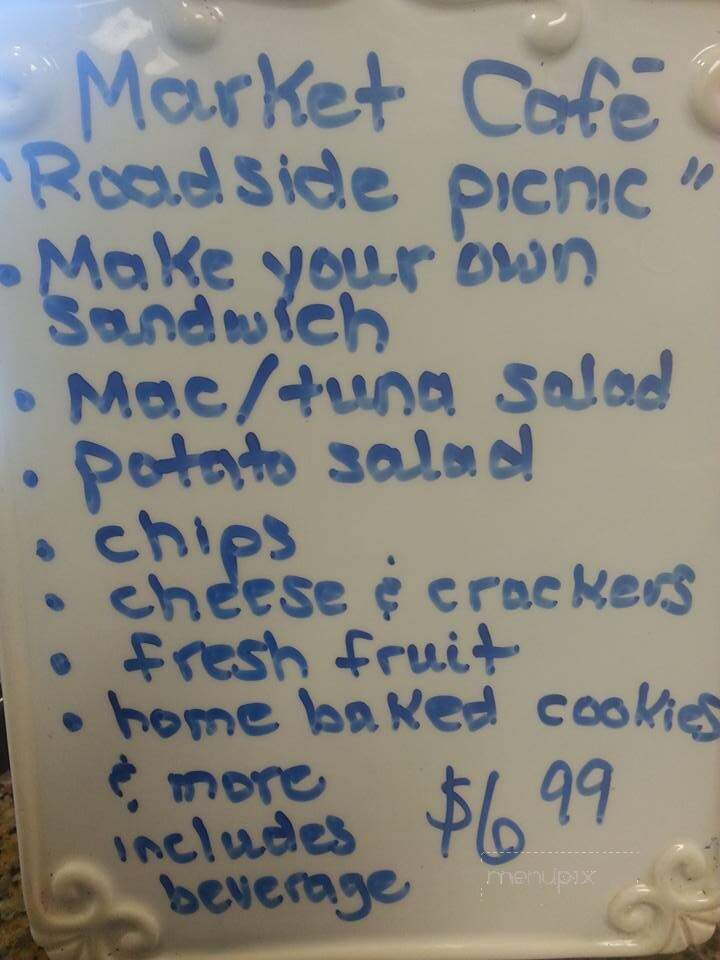 Market Café
"Roadside picnic"
• Make your own
sandwich
• Mac/tuna salad
• potato salad
• chips
• cheese & crackers
• fresh fruit
• home baked cookies
& more
includes
beverage
$6 99
menupix